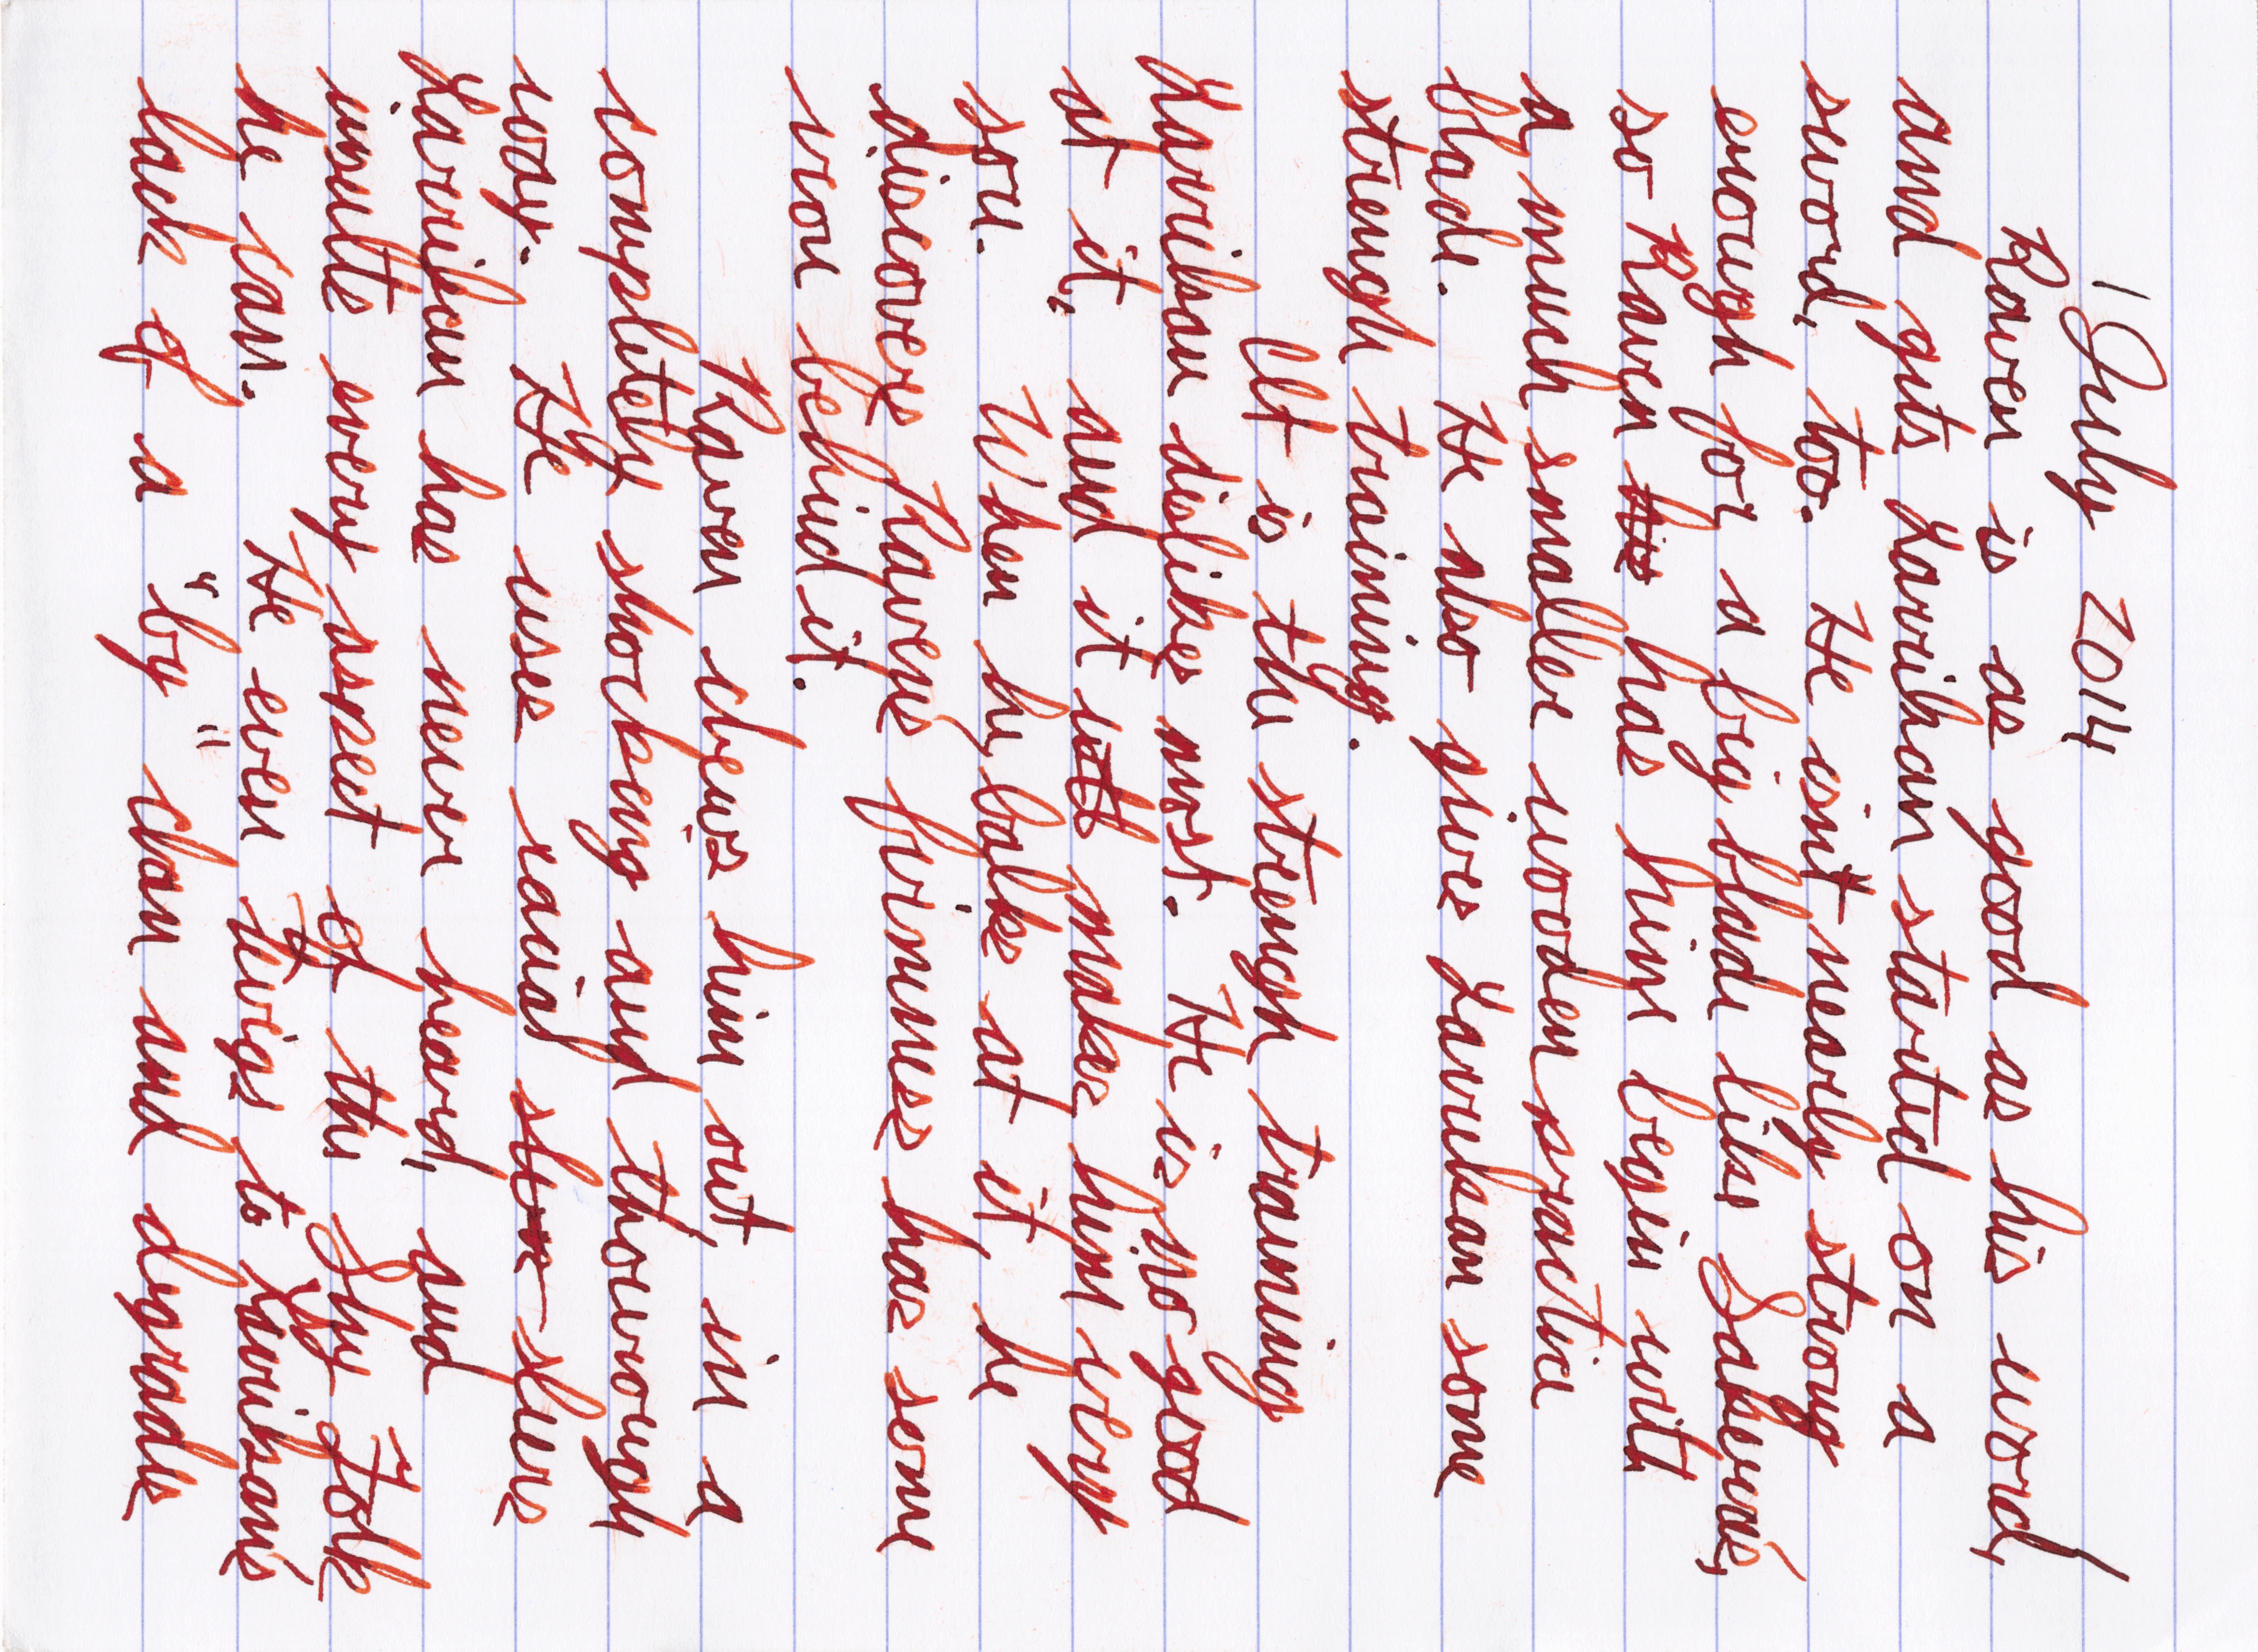 1 July 2014
Raven is as good as his word,
and gets Larrikan started on a
sword, too. He isn't nearly strong
enough for a big blade like Sakera's,
so Raven his has him begin with
a much smaller wooden practice
blade. He also gives Larrikan some
strengh training.
It is the strengh training
Larrikan dislikes most. He is no good
at it, and it makes him very
sore. When he balks at it he
discovers Raven's firmness has some
iron behind it.
Raven chews him out, in a
completely shocking and thorough
way. He uses racial slurs
Larrikan has never heard, and
insults every aspect of the Shy Folk
he can. He even twigs to Larrikan's
lack of a "by" clan and degrades